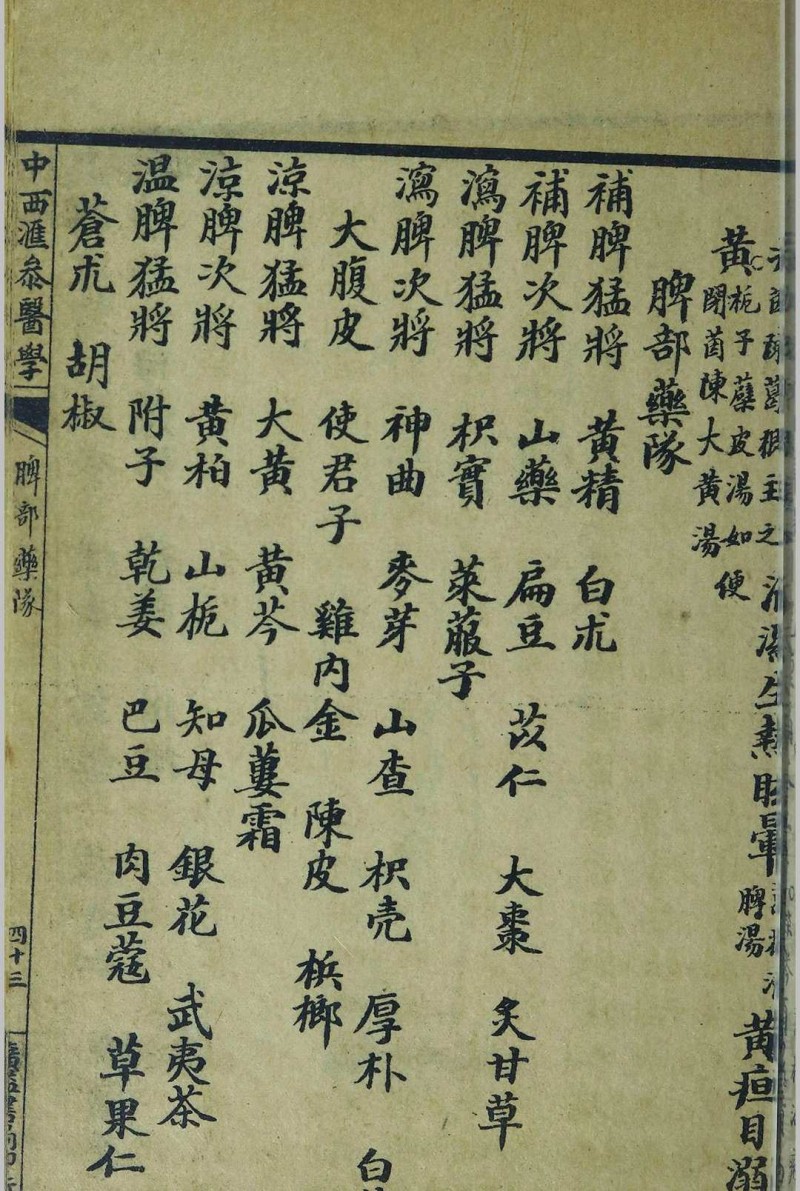 黃疸目溺
黃
梔子蘗皮湯如便
閉茵陳大黃湯
脾湯
脾部藥隊
補脾猛將 黃精 白朮
補脾次將 山藥 扁豆 苡仁 大棗 炙甘草
瀉脾猛將 枳實 萊菔子
瀉脾次將 神曲 麥芽 山查 枳壳 厚朴 白
大腹皮 使君子 雞内金 陳皮 梹榔
涼脾猛將 大黃 黃芩 瓜蔞霜
涼脾次將 黃柏 山梔 知母 銀花 武夷茶
温脾猛將 附子 乾姜 巴豆 肉豆蔻 草果仁
蒼朮 胡椒
中西滙叅醫學
脾部藥隊
四十三